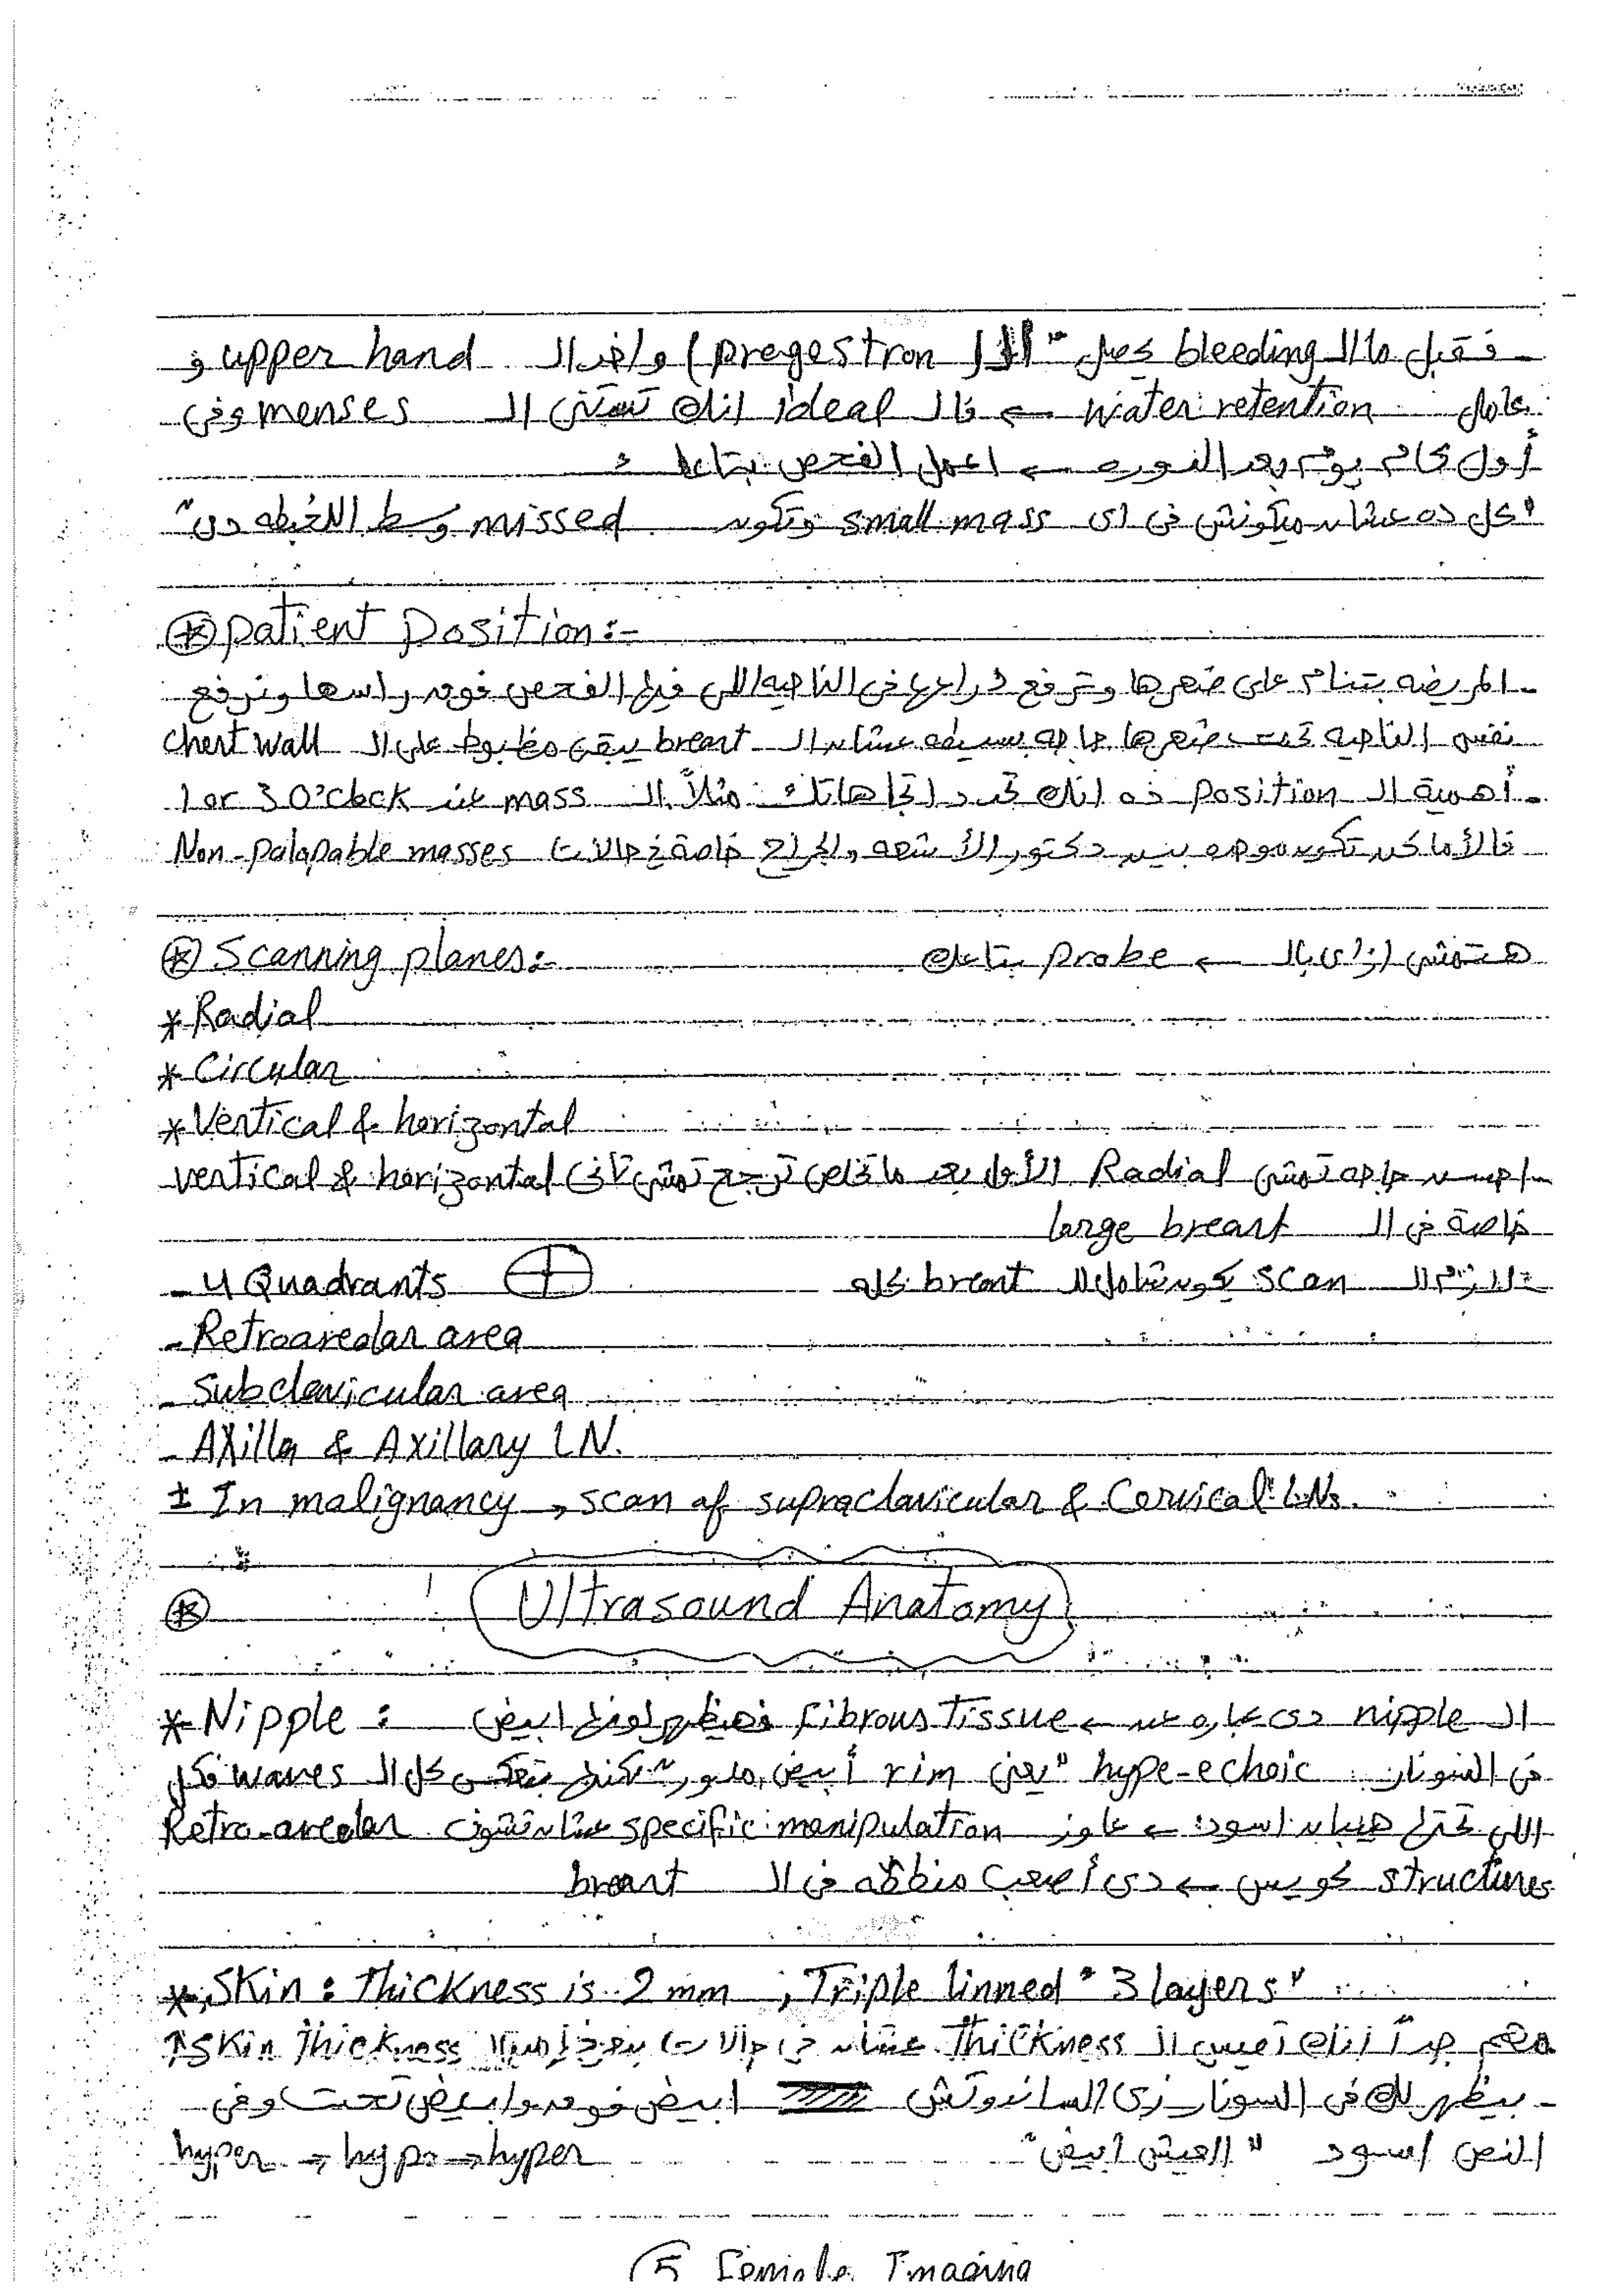 - فقبل ما الـ bleeding يحصل " الـ (pregestron واخد الـ upper hand و
عامل water retention ← فالـ ideal انك تستنى الـ menses وفى
أول كام يوم بعد الدوره ← اعمل الفحص بتاعك :
"كل ده عشان ميكونش فى اى small mass وتكون missed وسط اللخبطه دى"
⊛ patient position:-
- المريضه بتنام على ضهرها وترفع دراعها فى الناحيه اللى فيها الفحص فوق راسها ونرفع
نفس الناحيه تحت ضهرها حاجه بسيطه عشان الـ breast يبقى مظبوط على الـ chest wall
- أهمية الـ position ده انك تحدد اتجاهاتك : مثلاً الـ mass عند 1 or 3 O'clock
فالأماكن تكون موحده بين دكتور الأشعه والجراح خاصة فى حالات Non-palapable masses
⊛ Scanning planes:- هتمشى ازاى بالـ ← probe بتاعك
* Radial
* Circular
* Vertical & horizontal
- احسن حاجه تمشى Radial الأول بعد ما تخلص ترجع تمشى تانى vertical & horizontal
خاصة فى الـ large breast
- 4 Quadrants لازم الـ scan يكون شامل الـ breast كله
- Retroareolar area
- Subclavicular area
- Axilla & Axillary LN.
± In malignancy → scan of supraclavicular & Cervical LNs.
⊛ Ultrasound Anatomy
* Nipple : الـ nipple دى عباره عن ← fibrous tissue فهيظهر لونها ابيض
فى السونار hype-echoic "يعنى rim أبيض منور" لكنها بتعكس كل الـ waves فكل
اللى تحتها هيبان اسود ← عاوز specific manipulation عشان تشوف Retro-areolar
structures كويس ← دى أصعب منطقه فى الـ breast
* Skin : Thickness is 2 mm ; Triple linned "3 layers"
مهم جداً انك تقيس الـ Thickness عشان فى حالات بعرفها من الـ skin thickness ↑
- بيظهر لك فى السونار زى الساندوتش ابيض فوق وابيض تحت وفى
النص اسود "العيش ابيض" hyper → hypo → hyper
5 Female Imaging